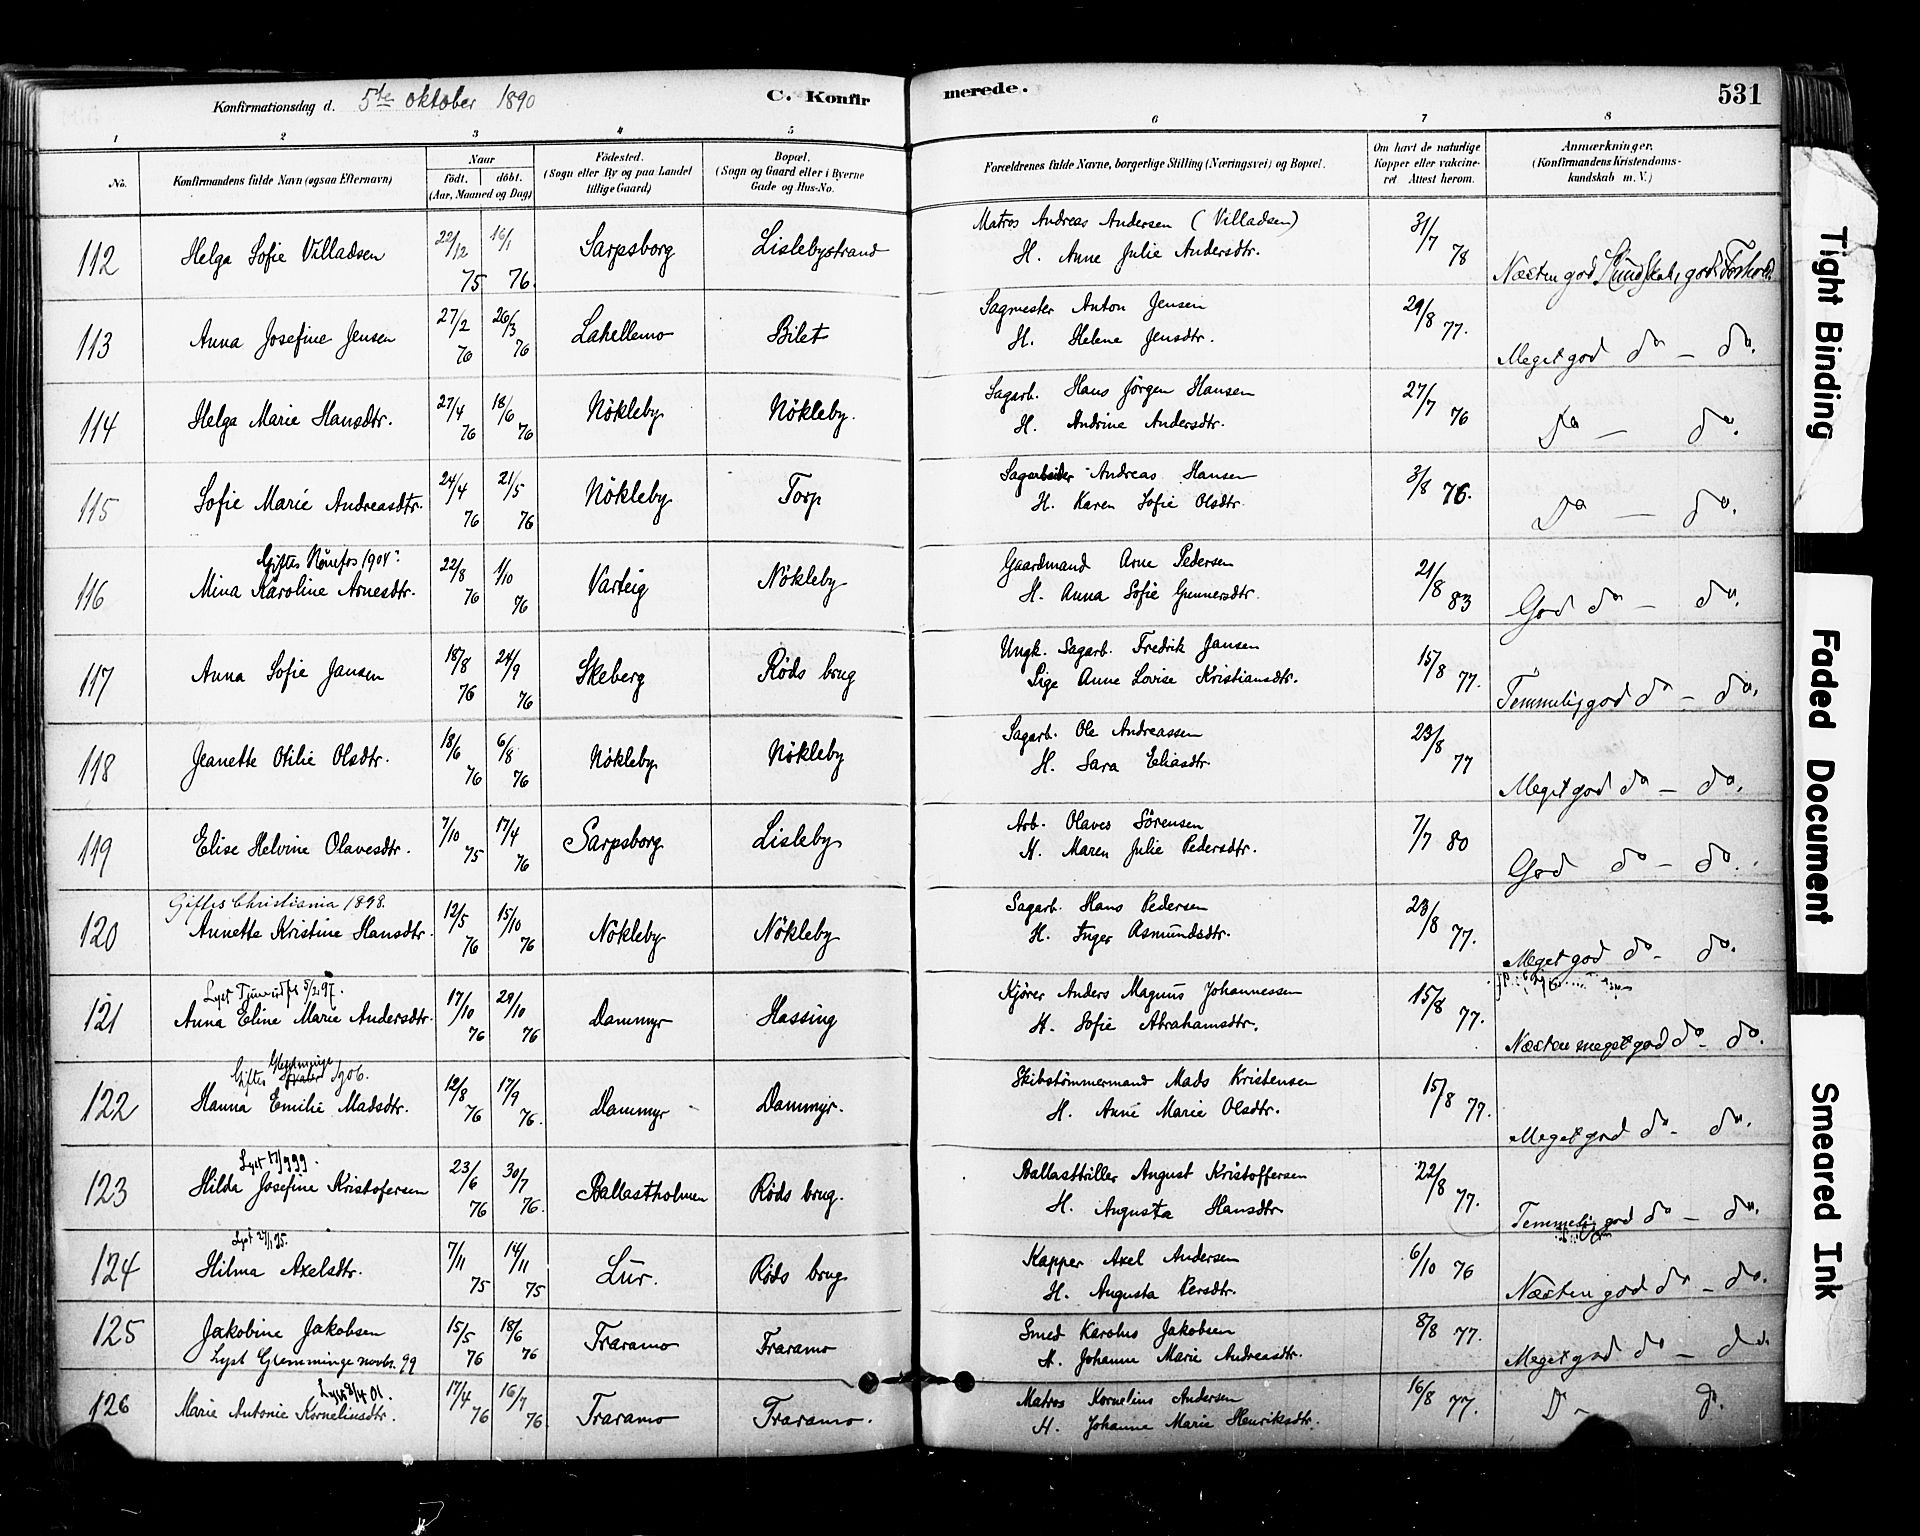 Konfirmationsdag d. 5te oktober 1890 C. Konfirmerede. 531
1 2 3 4 5 6 7 8
No. Konfirmandens fulde Navn (ogsaa Efternavn) Naar født. døbt. (Aar, Maaned og Dag) Fødested. (Sogn eller By og paa Landet tillige Gaard) Bopæl. (Sogn og Gaard eller i Byerne Gade og Hus-No. Forældrenes fulde Navne, borgerlige Stilling (Næringsvei) og Bopæl. Om havt de naturlige Kopper eller vakcineret Attest herom. Anmærkninger. (Konfirmandens Kristendomskundskab m. V.)
112 Helga Sofie Villadsen 22/12 75 16/1 76. Sarpsborg Lislebystrand Matros Andreas Andersen (Villadsen)
H. Anne Julie Andersdtr. 31/7 78 Næsten god Kundskab, god Forhold.
113 Anna Josefine Jensen 27/2 76 26/3 76 Lahellemo Bilet Sagmester Anton Jensen
H. Helene Jensdtr. 29/8 77. Meget god do – do.
114 Helga Marie Hansdtr. 27/4 76 18/6 76 Nökleby Nökleby. Sagarb. Hans Jörgen Hansen
H. Andrine Andersdtr. 27/7 76 Do – do.
115 Sofie Marie Andreasdtr. 24/4 76 21/5 76 Nökleby Torp Sagarbeider Andreas Hansen
H. Karen Sofie Olsdtr. 3/8 76. Do – do.
Giftes 1904
116 Mina Karoline Arnesdtr. 22/8 76 1/10 76 Varteig Nökleby Gaardmand Arne Pedersen
H. Anna Sofie Gunnersdtr. 21/8 83 God do – do.
117 Anna Sofie Jansen 18/8 76 24/9 76 Skeberg Röds brug Ungk. Sagarb. Fredrik Jansen
Pige Anne Lovise Kristiansdtr. 15/8 77. Temmelig god do – do.
118 Jeanette Otilie Olsdtr. 18/6 76 6/8 76 Nökleby Nökleby Sagarb. Ole Andreassen
H. Sara Eliasdtr. 23/8 77 Meget god do – do.
119 Elise Helvine Olavesdtr. 7/10 75 17/4 76 Sarpsborg Lisleby Arb. Olaves Sörensen
H. Maren Julie Pedersdtr. 7/7 80 God do – do.
Giftes Christiania 1898.
120 Annette Kristine Hansdtr. 12/5 76 15/10 76 Nökleby Nökleby Sagarb. Hans Pedersen
H. Inger Asmundsdtr. 23/8 77. Meget god do – do.
Lyst 5/2 97.
121 Anna Eline Marie Andersdtr. 17/10 76 29/10 76 Dammyr Hassing Kjörer Anders Magnus Johannessen
H. Sofie Abrahamsdtr. 15/8 77. Næsten meget god do – do.
Giftes Glemminge 1906.
122 Hanna Emilie Madsdtr. 12/8 76 17/9 76. Dammyr Dammyr. Skibstömmermand Mads Kristensen
H. Anne Marie Olsdtr. 15/8 77. Meget god do – do.
Lyst 17/9 99.
123 Hilda Josefine Kristofersen 23/6 76 30/7 76. Ballastholmen Röds brug. Ballasttriller August Kristoffersen
H. Augusta Hansdtr. 22/8 77. Temmelig god do – do.
Lyst
124 Hilma Axelsdtr. 7/11 75 14/11 75 Lur. Röds brug. Kapper Axel Andersen
H. Augusta Persdtr. 6/10 76 Næsten god do – do.
125 Jakobine Jakobsen 15/5 76 18/6 76 Traramo Traramo Smed Karolus Jakobsen
Lyst Glemminge novbr. 99 H. Johanne Marie Andreasdtr. 8/8 77. Meget god do – do.
Lyst 8/4 01.
126 Marie Antonie Korneliusdtr. 17/4 76 16/7 76. Traramo Traramo. Matros Kornelius Andersen
H. Johanne Marie Henriksdtr. 16/8 77. Do – do.
Tight Binding
Faded Document
Smeared Ink